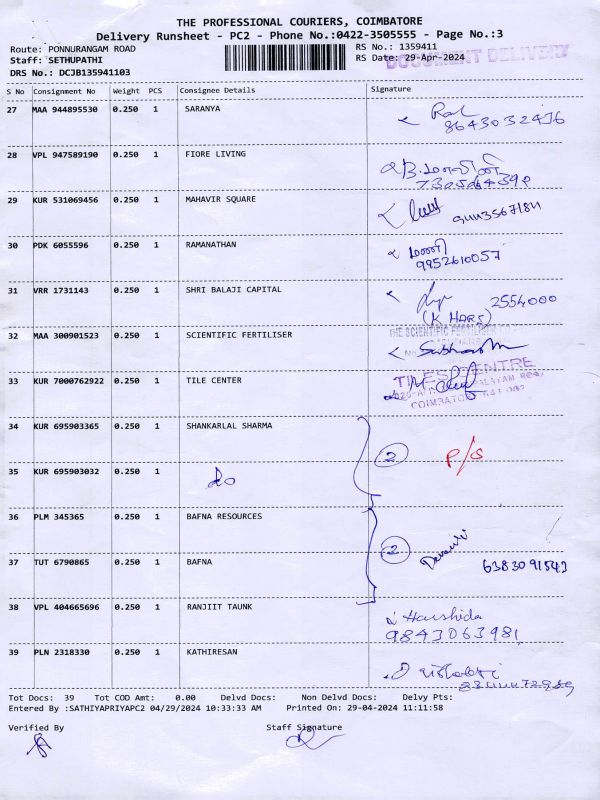 THE PROFESSIONAL COURIERS, COIMBATORE
Delivery Runsheet - PC2 - Phone No.:0422-3505555 - Page No.:3
Route: PONNURANGAM ROAD RS No.: 1359411
Staff: SETHUPATHI RS Date: 29-Apr-2024
DOCUMENT DELIVERY
DRS No.: DCJB135941103
S No Consignment No Weight PCS Consignee Details Signature
27 MAA 944895530 0.250 1 SARANYA
8643032436
28 VPL 947589190 0.250 1 FIORE LIVING
29 KUR 531069456 0.250 1 MAHAVIR SQUARE
30 PDK 6055596 0.250 1 RAMANATHAN
9952610057
31 VRR 1731143 0.250 1 SHRI BALAJI CAPITAL 2554000
(K HARS)
32 MAA 300901523 0.250 1 SCIENTIFIC FERTILISER THE SCIENTIFIC FERTILISER
33 KUR 7000762922 0.250 1 TILE CENTER TILES CENTRE
COIMBATORE
34 KUR 695903365 0.250 1 SHANKARLAL SHARMA 2 P/S
35 KUR 695903032 0.250 1 do
36 PLM 345365 0.250 1 BAFNA RESOURCES
2
37 TUT 6790865 0.250 1 BAFNA 6383091543
38 VPL 404665696 0.250 1 RANJIIT TAUNK Harshida
9843063981
39 PLN 2318330 0.250 1 KATHIRESAN
Tot Docs: 39 Tot COD Amt: 0.00 Delvd Docs: Non Delvd Docs: Delvy Pts:
Entered By :SATHIYAPRIYAPC2 04/29/2024 10:33:33 AM Printed On: 29-04-2024 11:11:58
Verified By Staff Signature